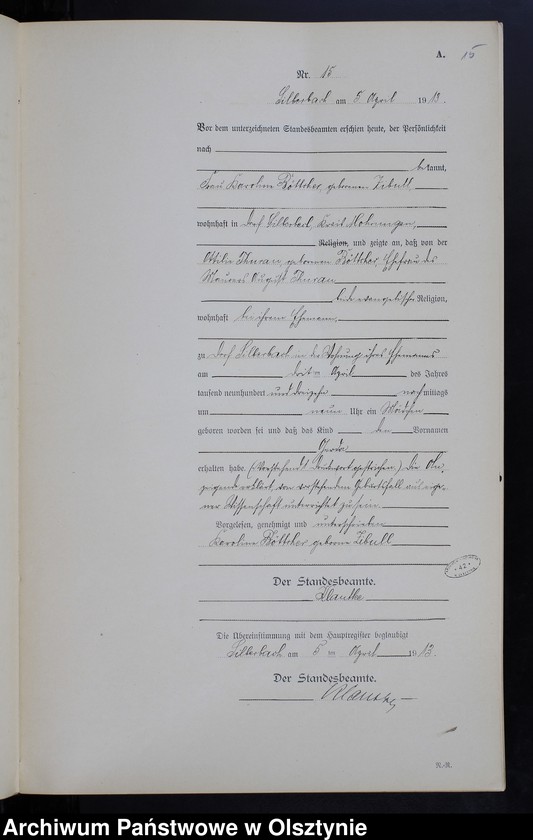 A. 15
Nr. 15
Silberbach am 5 April 1913.
Vor dem unterzeichneten Standesbeamten erschien heute, der Persönlichkeit
nach
bekannt,
Frau Karoline Böttcher, geborenen Zibull
wohnhaft in Dorf Silberbach, Kreis Mohrungen,
Religion, und zeigte an, daß von der
Ottilie Thurau, geborenen Böttcher, Ehefrau des
Maurers August Thurau
beide evangelische Religion,
wohnhaft bei ihrem Ehemann,
zu Dorf Silberbach in der Wohnung ihres Ehemannes
am dritten April des Jahres
tausend neunhundert und dreizehn nachmittags
um neun Uhr ein Mädchen
geboren worden sei und daß das Kind den Vornamen
erhalten habe. (Vorstehend 1 Druckwort gestrichen.) Die An-
zeigende erklärt, von vorstehendem Geburtsfall aus eige-
ner Wissenschaft unterrichtet zu sein
Vorgelesen, genehmigt und unterschrieben
Karoline Böttcher geborne Zibull
Der Standesbeamte.
Klautke
Die Übereinstimmung mit dem Hauptregister beglaubigt
Silberbach am 5 ten April 1913.
Der Standesbeamte.
Klautke
N.-R.
Archiwum Państwowe w Olsztynie